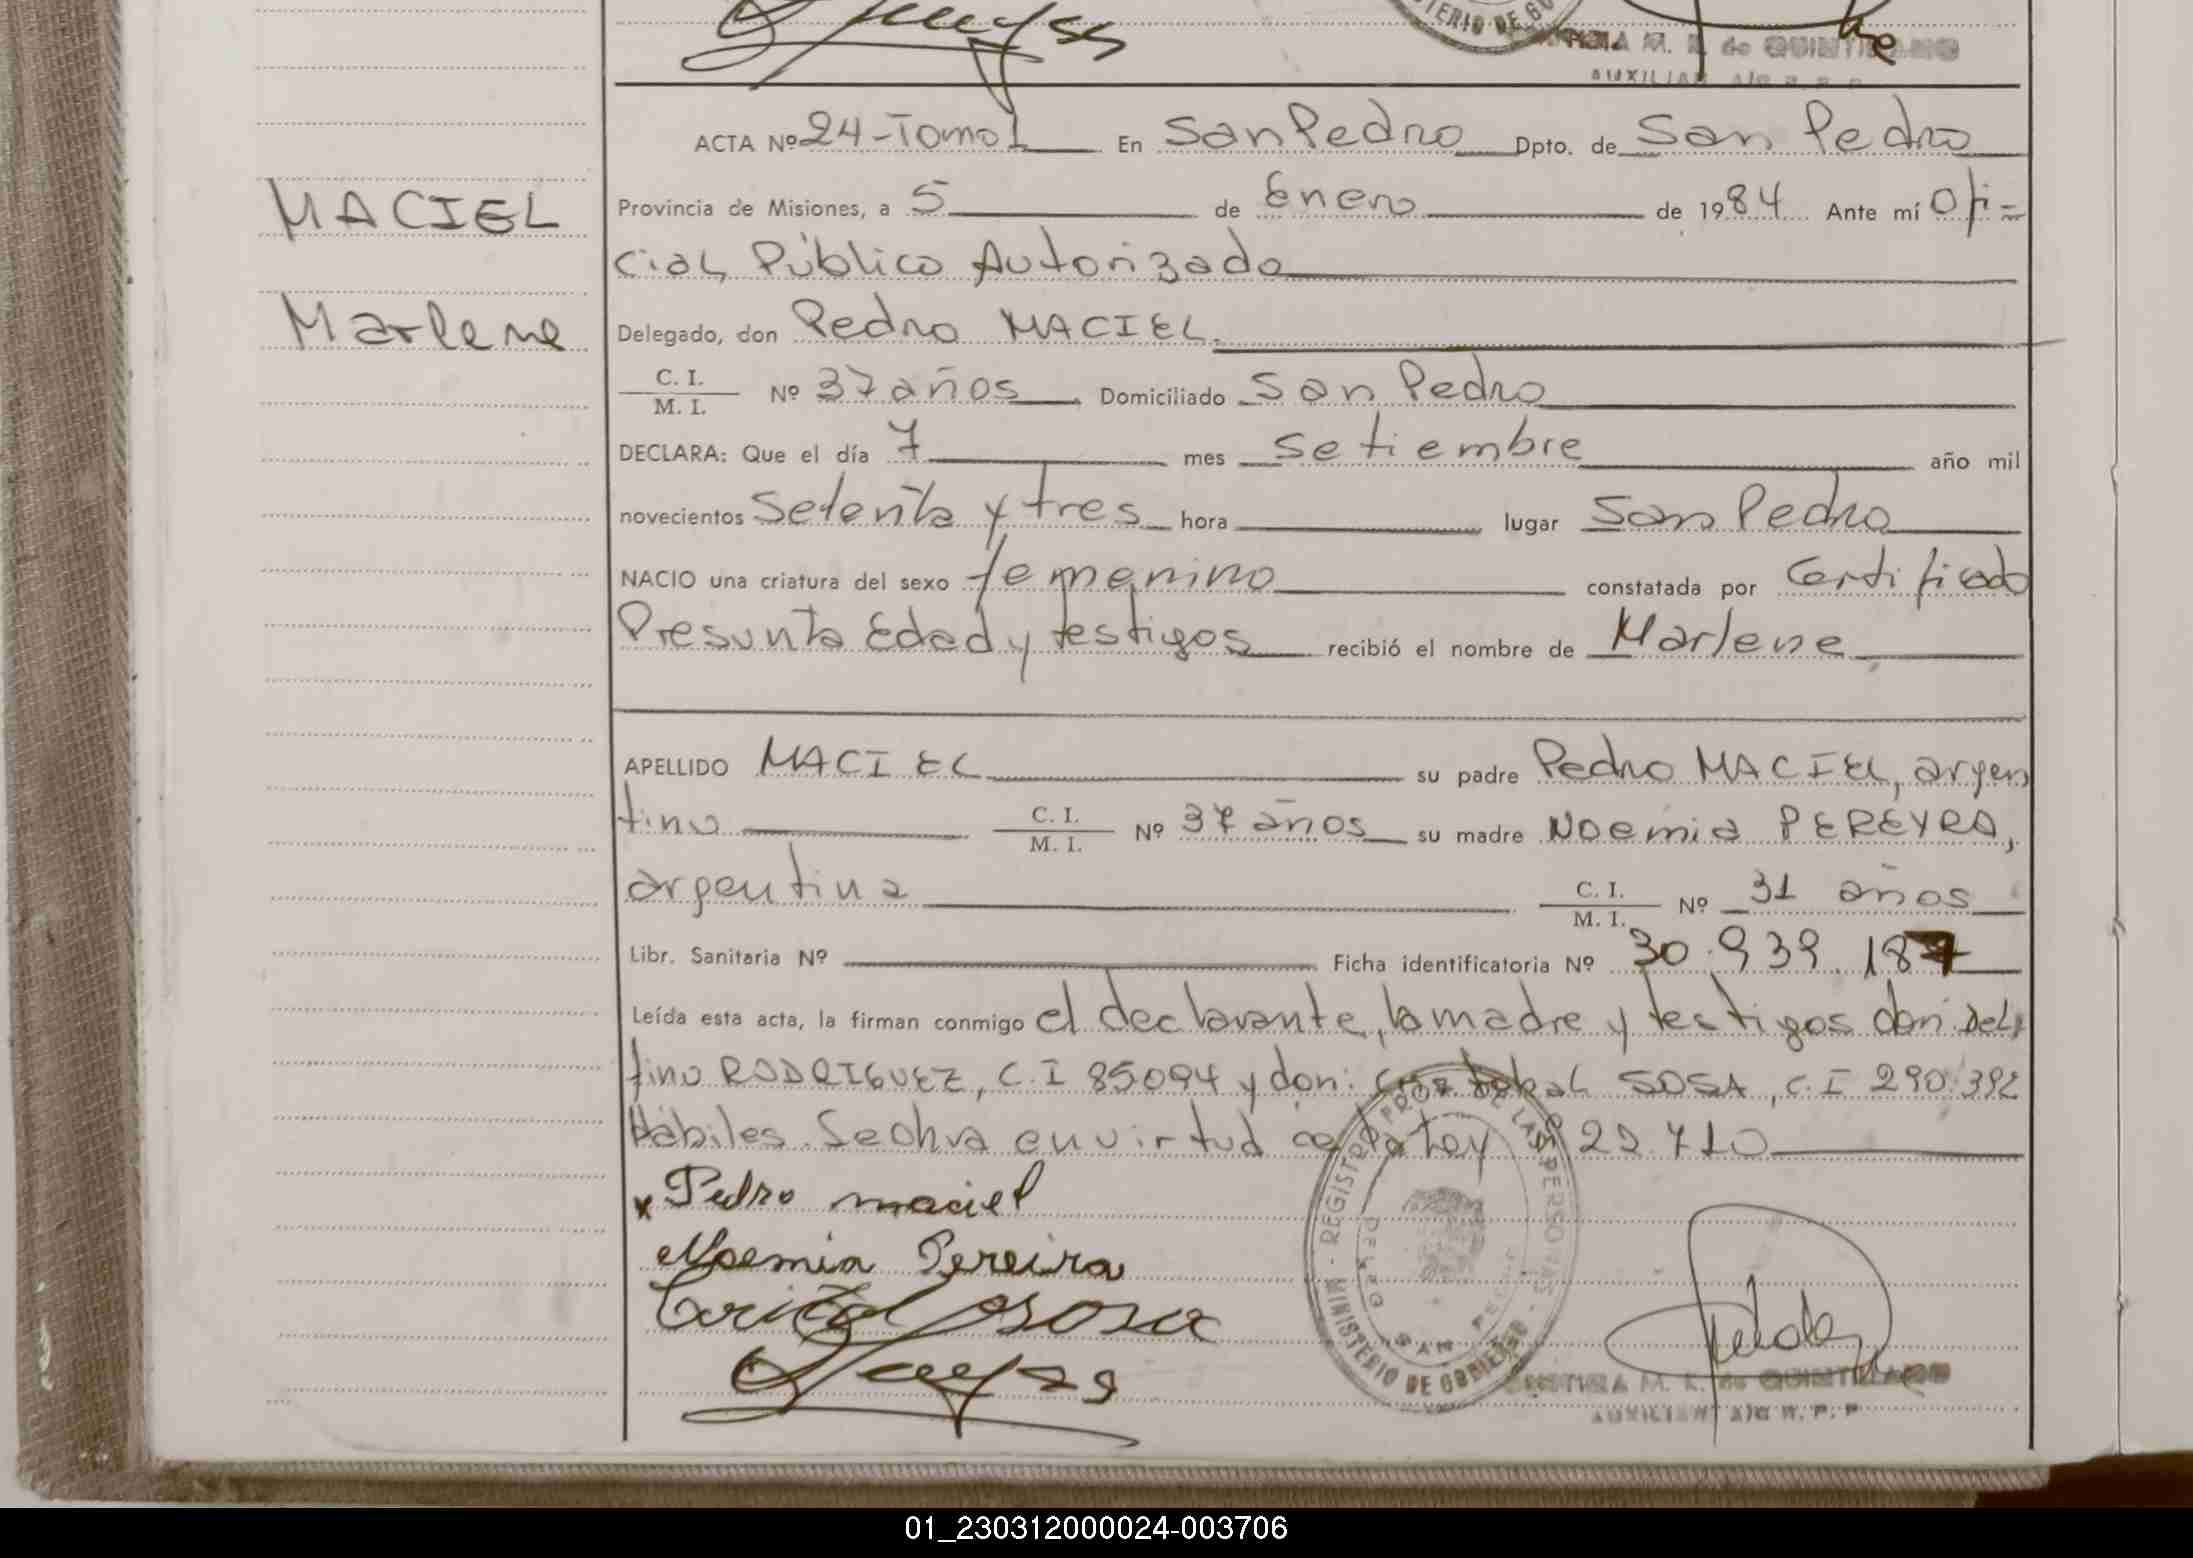 MINISTERIO DE GO
M. K. de QUINTILLANO
AUXILIAR A/C R. P. P.
ACTA Nº 24-Tomo 1 En San Pedro Dpto. de San Pedro
MACIEL
Provincia de Misiones, a 5 de Enero de 1984 Ante mí Ofi-
cial Público Autorizado
Marlene
Delegado, don Pedro MACIEL.
C. I.
M. I. Nº 37 años Domiciliado San Pedro
DECLARA: Que el día 7 mes setiembre año mil
novecientos Setenta y tres hora lugar San Pedro
NACIO una criatura del sexo femenino constatada por Certificado
Presunta Edad y testigos recibió el nombre de Marlene
APELLIDO MACIEL su padre Pedro MACIEL, argen
tino C. I.
M. I. Nº 37 años su madre Noemia PEREYRA,
argentina C. I.
M. I. Nº 31 años
Libr. Sanitaria Nº Ficha identificatoria Nº 30.939.187
Leída esta acta, la firman conmigo el declarante, la madre y testigos don: Del
fino RODRIGUEZ, C.I 85094 y don: Cristobal SOSA, C.I 290.392
Hábiles. Se obra en virtud de la Ley Nº 22.710
x Pedro maciel
Noemia Pereira
Cristobal sosa
REGISTRO PROV. DE LAS PERSONAS - MINISTERIO DE GOBIERNO
SAN PEDRO
M. K. de QUINTILLANO
AUXILIAR A/C R. P. P.
01_230312000024-003706